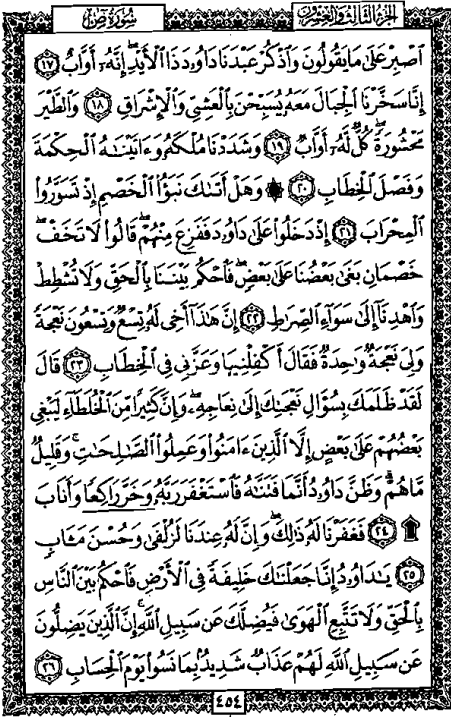 الجزء الثالث والعشرون
سورة ص
ٱصۡبِرۡ عَلَىٰ مَا يَقُولُونَ وَٱذۡكُرۡ عَبۡدَنَا دَاوُۥدَ ذَا ٱلۡأَيۡدِۖ إِنَّهُۥٓ أَوَّابٌ ١٧
إِنَّا سَخَّرۡنَا ٱلۡجِبَالَ مَعَهُۥ يُسَبِّحۡنَ بِٱلۡعَشِيِّ وَٱلۡإِشۡرَاقِ ١٨ وَٱلطَّيۡرَ
مَحۡشُورَةٗۖ كُلّٞ لَّهُۥٓ أَوَّابٞ ١٩ وَشَدَدۡنَا مُلۡكَهُۥ وَءَاتَيۡنَٰهُ ٱلۡحِكۡمَةَ
وَفَصۡلَ ٱلۡخِطَابِ ٢٠ ۞ وَهَلۡ أَتَىٰكَ نَبَؤُاْ ٱلۡخَصۡمِ إِذۡ تَسَوَّرُواْ
ٱلۡمِحۡرَابَ ٢١ إِذۡ دَخَلُواْ عَلَىٰ دَاوُۥدَ فَفَزِعَ مِنۡهُمۡۖ قَالُواْ لَا تَخَفۡۖ
خَصۡمَانِ بَغَىٰ بَعۡضُنَا عَلَىٰ بَعۡضٖ فَٱحۡكُم بَيۡنَنَا بِٱلۡحَقِّ وَلَا تُشۡطِطۡ
وَٱهۡدِنَآ إِلَىٰ سَوَآءِ ٱلصِّرَٰطِ ٢٢ إِنَّ هَٰذَآ أَخِي لَهُۥ تِسۡعٞ وَتِسۡعُونَ نَعۡجَةٗ
وَلِيَ نَعۡجَةٞ وَٰحِدَةٞ فَقَالَ أَكۡفِلۡنِيهَا وَعَزَّنِي فِي ٱلۡخِطَابِ ٢٣ قَالَ
لَقَدۡ ظَلَمَكَ بِسُؤَالِ نَعۡجَتِكَ إِلَىٰ نِعَاجِهِۦۖ وَإِنَّ كَثِيرٗا مِّنَ ٱلۡخُلَطَآءِ لَيَبۡغِي
بَعۡضُهُمۡ عَلَىٰ بَعۡضٍ إِلَّا ٱلَّذِينَ ءَامَنُواْ وَعَمِلُواْ ٱلصَّٰلِحَٰتِ وَقَلِيلٞ
مَّا هُمۡۗ وَظَنَّ دَاوُۥدُ أَنَّمَا فَتَنَّٰهُ فَٱسۡتَغۡفَرَ رَبَّهُۥ وَخَرَّۤ رَاكِعٗاۤ وَأَنَابَ
۩ ٢٤ فَغَفَرۡنَا لَهُۥ ذَٰلِكَۖ وَإِنَّ لَهُۥ عِندَنَا لَزُلۡفَىٰ وَحُسۡنَ مَـَٔابٖ
٢٥ يَٰدَاوُۥدُ إِنَّا جَعَلۡنَٰكَ خَلِيفَةٗ فِي ٱلۡأَرۡضِ فَٱحۡكُم بَيۡنَ ٱلنَّاسِ
بِٱلۡحَقِّ وَلَا تَتَّبِعِ ٱلۡهَوَىٰ فَيُضِلَّكَ عَن سَبِيلِ ٱللَّهِۚ إِنَّ ٱلَّذِينَ يَضِلُّونَ
عَن سَبِيلِ ٱللَّهِ لَهُمۡ عَذَابٞ شَدِيدُۢ بِمَا نَسُواْ يَوۡمَ ٱلۡحِسَابِ ٢٦
٤٥٤